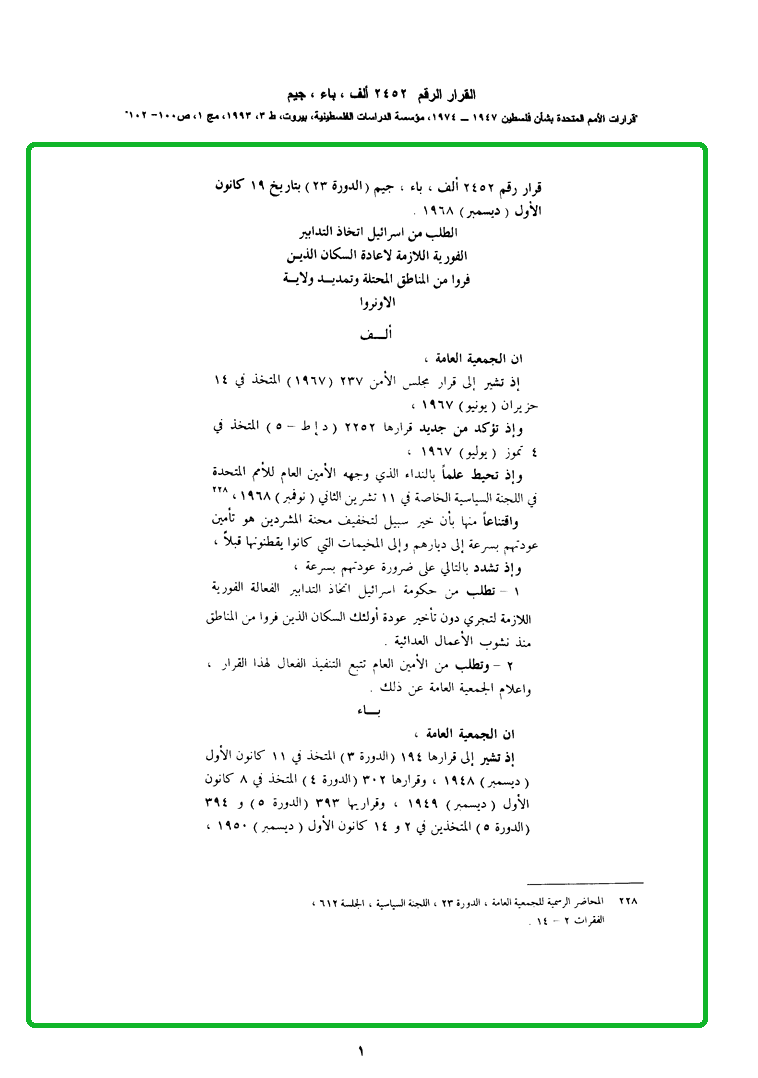 القرار الرقم ٢٤٥٢ ألف ، باء ، جيم
"قرارات الأمم المتحدة بشأن فلسطين ١٩٤٧ ــ ١٩٧٤، مؤسسة الدراسات الفلسطينية، بيروت، ط ٣، ١٩٩٣، مج ١، ص١٠٠- ١٠٢"
قرار رقم ٢٤٥٢ ألف ، باء ، جيم (الدورة ٢٣) بتاريخ ١٩ كانون
الأول ( ديسمبر ) ١٩٦٨ .
الطلب من اسرائيل اتخاذ التدابير
الفورية اللازمة لاعادة السكان الذيـن
فروا من المناطق المحتلة وتمديـد ولايـة
الاونروا
ألــف
ان الجمعية العامة ،
إذ تشير إلى قرار مجلس الأمن ٢٣٧ (١٩٦٧) المتخذ في ١٤
حزيران ( يونيو ) ١٩٦٧ ،
وإذ تؤكد من جديد قرارها ٢٢٥٢ ( د إ ط – ٥ ) المتخذ في
٤ تموز ( يوليو ) ١٩٦٧ ،
وإذ تحيط علماً بالنداء الذي وجهه الأمين العام للأمم المتحدة
في اللجنة السياسية الخاصة في ١١ تشرين الثاني ( نوفمبر ) ١٩٦٨ ، ٢٢٨
واقتناعاً منها بأن خير سبيل لتخفيف محنة المشردين هو تأمين
عودتهم بسرعة إلى ديارهم وإلى المخيمات التي كانوا يقطنونها قبلاً ،
وإذ تشدد بالتالي على ضرورة عودتهم بسرعة ،
١ – تطلب من حكومة اسرائيل اتخاذ التدابير الفعالة الفورية
اللازمة لتجري دون تأخير عودة أولئك السكان الذين فروا من المناطق
منذ نشوب الأعمال العدائية .
٢ – وتطلب من الأمين العام تتبع التنفيذ الفعال لهذا القرار ،
واعلام الجمعية العامة عن ذلك .
بــاء
ان الجمعية العامة ،
إذ تشير إلى قرارها ١٩٤ (الدورة ٣) المتخذ في ١١ كانون الأول
( ديسمبر ) ١٩٤٨ ، وقرارها ٣٠٢ (الدورة ٤) المتخذ في ٨ كانون
الأول ( ديسمبر ) ١٩٤٩ ، وقراريها ٣٩٣ (الدورة ٥) و ٣٩٤
(الدورة ٥) المتخذين في ٢ و ١٤ كانون الأول ( ديسمبر ) ١٩٥٠ ،
٢٢٨ المحاضر الرسمية للجمعية العامة ، الدورة ٢٣ ، اللجنة السياسية ، الجلسة ٦١٢ ،
الفقرات ٢ – ١٤ .
١